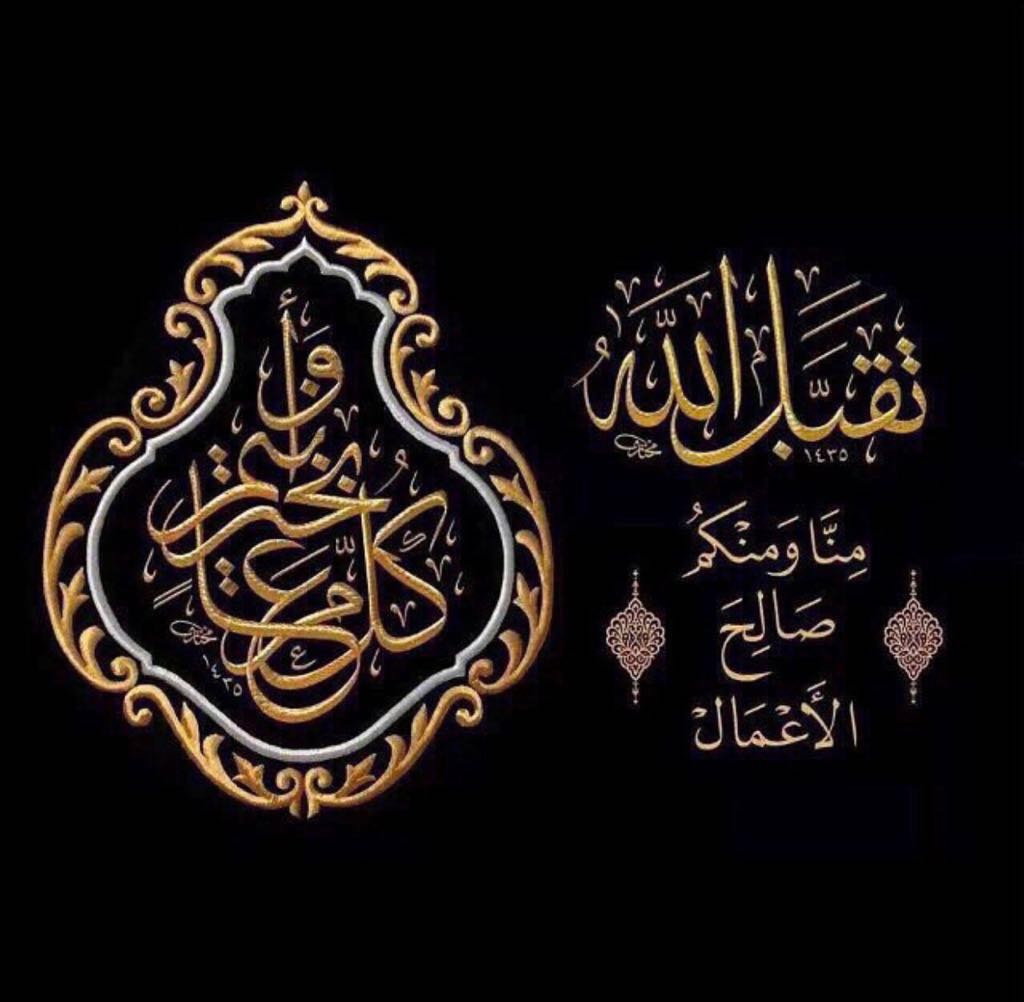 تَقَبَّلَ اللَّهُ
١٤٣٥
مِنَّا وَمِنْكُمُ
صَالِحَ
الْأَعْمَالْ
كُلُّ عَامٍ وَأَنتُم بِخَيْرٍ
١٤٣٥